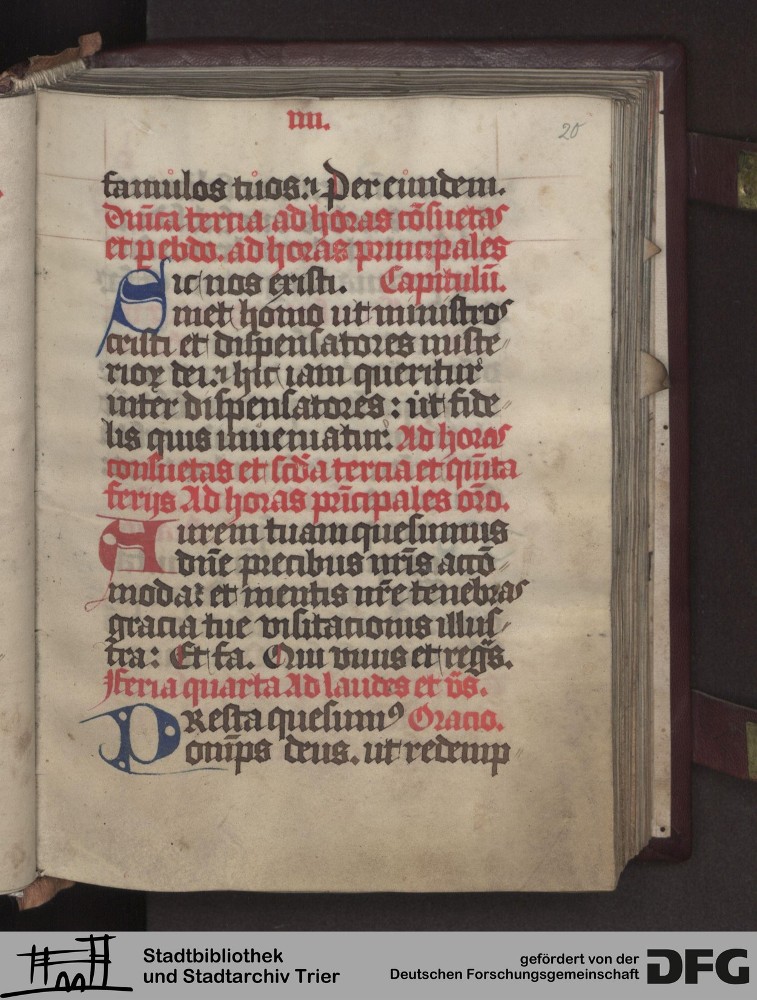 iiii.
20
famulos tuos: ⁊ Per eundem.
Dn̄ica tercia ad horas cōsuetas
et p̱ ebdo. ad horas principales
Sic nos existi. Capitulū.
met homo ut ministros
cristi et dispensatores miste
rioꝝ dei: hic iam queritur
inter dispensatores: ut fide
lis quis inueniatur. Ad horas
consuetas et scd̄a tercia et quīta
ferijs Ad horas prīcipales or̄o.
Aurem tuam quesumus
dn̄e precibus nr̄is accō
moda: et mentis nr̄e tenebras
gracia tue visitacionis illus
tra: Et fa. Qui viuis et regs̄.
Feria quarta Ad laudes et v̄s.
PResta quesumꝰ Oracio.
omīps deus. ut redemp
Stadtbibliothek
und Stadtarchiv Trier
gefördert von der
Deutschen Forschungsgemeinschaft
DFG